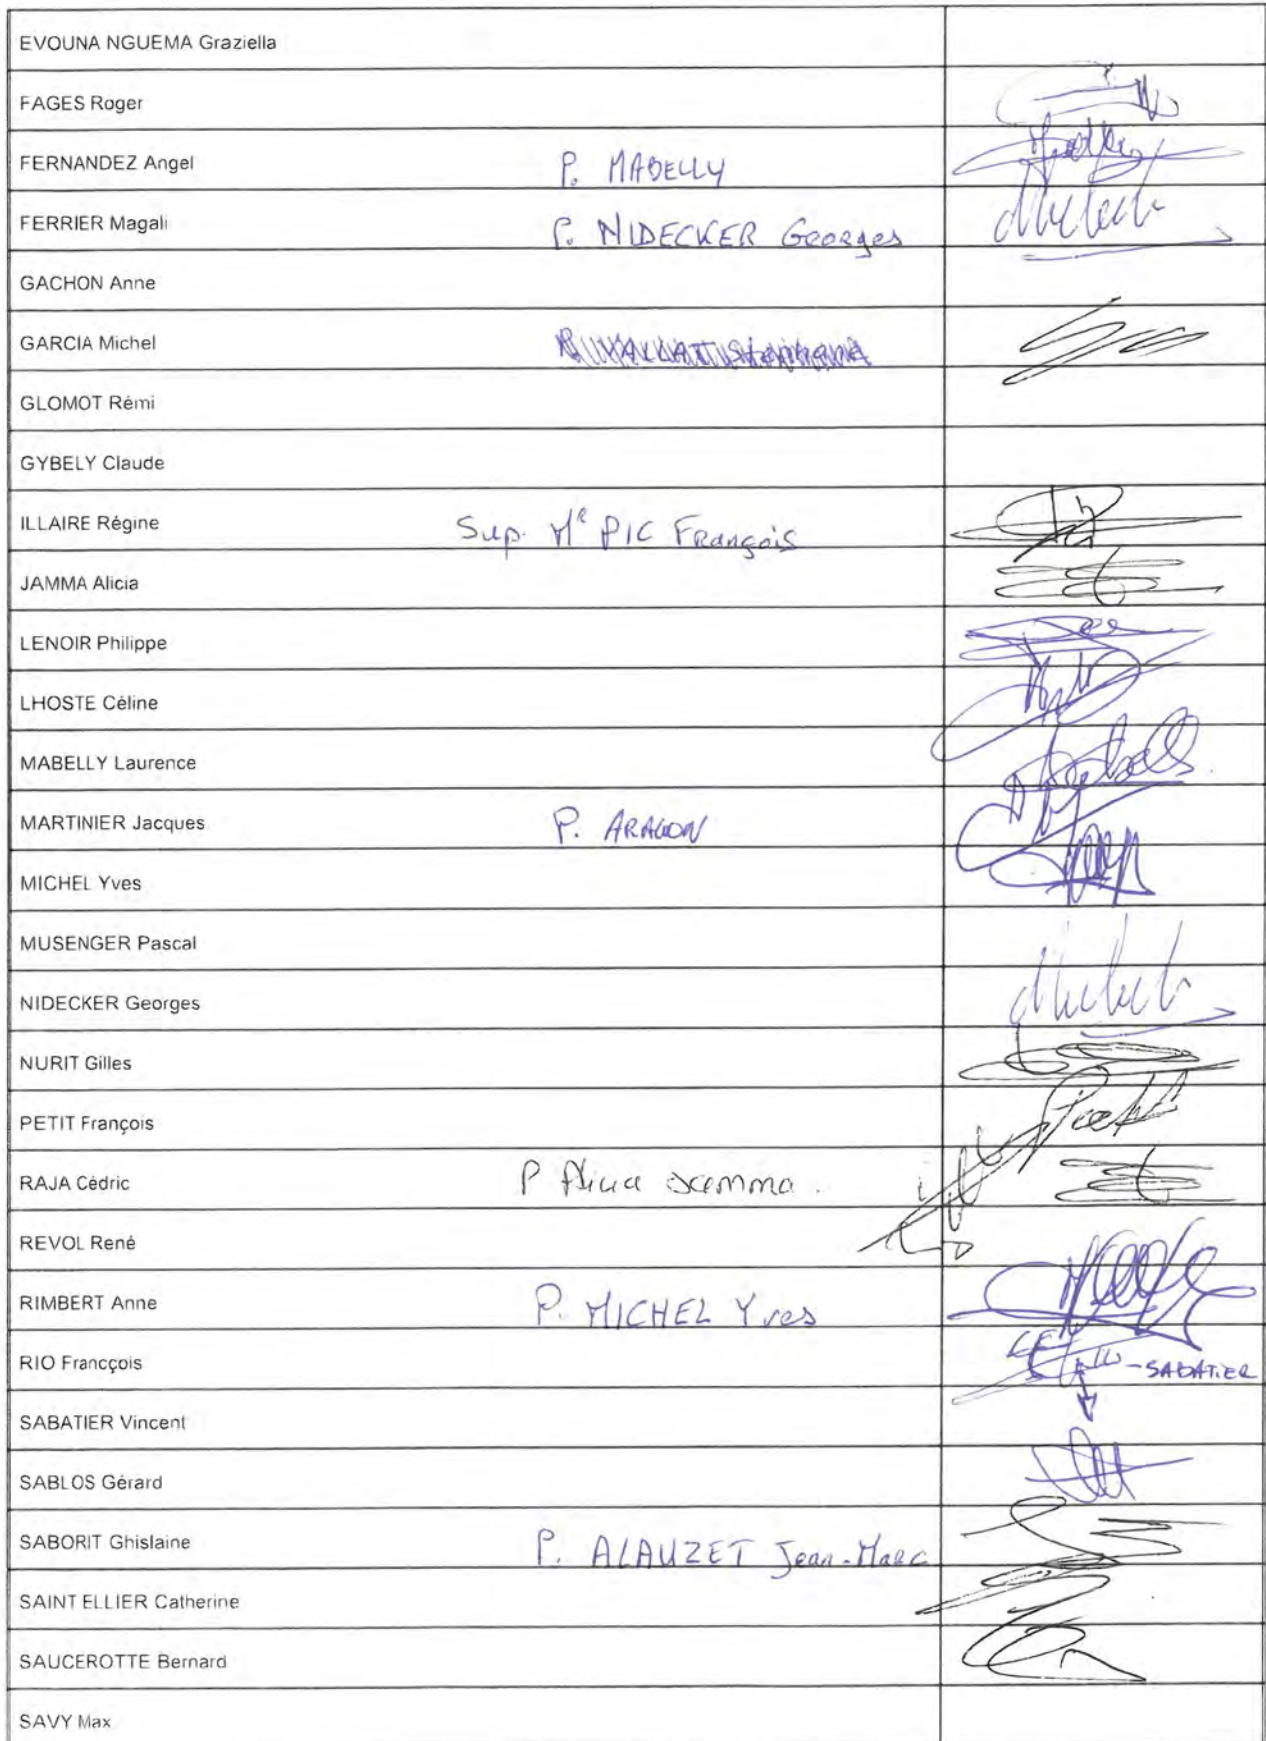 EVOUNA NGUEMA Graziella
FAGES Roger
FERNANDEZ Angel P. MABELLY
FERRIER Magali P. NIDECKER Georges
GACHON Anne
GARCIA Michel
GLOMOT Rémi
GYBELY Claude
ILLAIRE Régine Sup. Mr PIC François
JAMMA Alicia
LENOIR Philippe
LHOSTE Céline
MABELLY Laurence
MARTINIER Jacques P. ARAGON
MICHEL Yves
MUSENGER Pascal
NIDECKER Georges
NURIT Gilles
PETIT François
RAJA Cédric P Alicia Jamma.
REVOL René
RIMBERT Anne P. MICHEL Yves
RIO Francçois - SABATIER
SABATIER Vincent
SABLOS Gérard
SABORIT Ghislaine P. ALAUZET Jean-Marc
SAINT ELLIER Catherine
SAUCEROTTE Bernard
SAVY Max